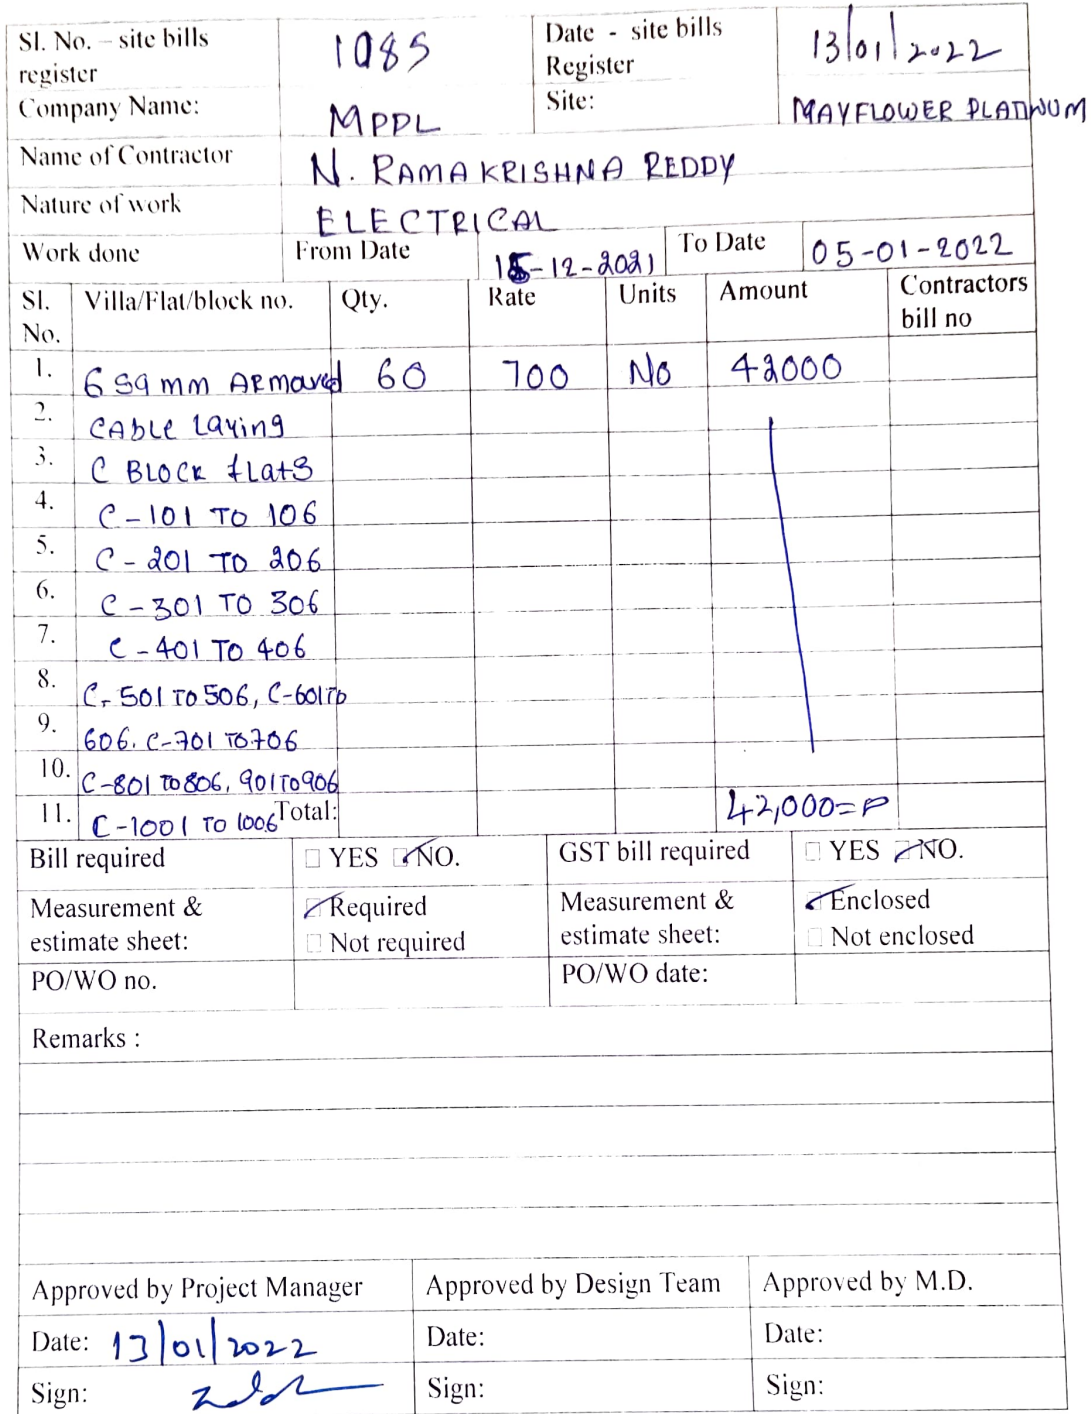 Sl. No. – site bills register 1085 Date - site bills Register 13/01/2022
Company Name: MPPL Site: MAYFLOWER PLATINUM
Name of Contractor N. RAMAKRISHNA REDDY
Nature of work ELECTRICAL
Work done From Date 15-12-2021 To Date 05-01-2022
Sl. No. Villa/Flat/block no. Qty. Rate Units Amount Contractors bill no
1. 6 sq mm ARmoured 60 700 No 42000
2. CABLe Laying
3. C BLOCK flats
4. C-101 TO 106
5. C-201 TO 206
6. C-301 TO 306
7. C-401 TO 406
8. C-501 TO 506, C-601 To
9. 606. C-701 TO 706
10. C-801 TO 806, 901 TO 906
11. C-1001 TO 1006 Total: 42,000=
Bill required □ YES ☑ NO. GST bill required □ YES ☑ NO.
Measurement & estimate sheet: ☑ Required □ Not required Measurement & estimate sheet: ☑ Enclosed □ Not enclosed
PO/WO no. PO/WO date:
Remarks :
Approved by Project Manager Approved by Design Team Approved by M.D.
Date: 13/01/2022 Date: Date:
Sign: Sign: Sign: